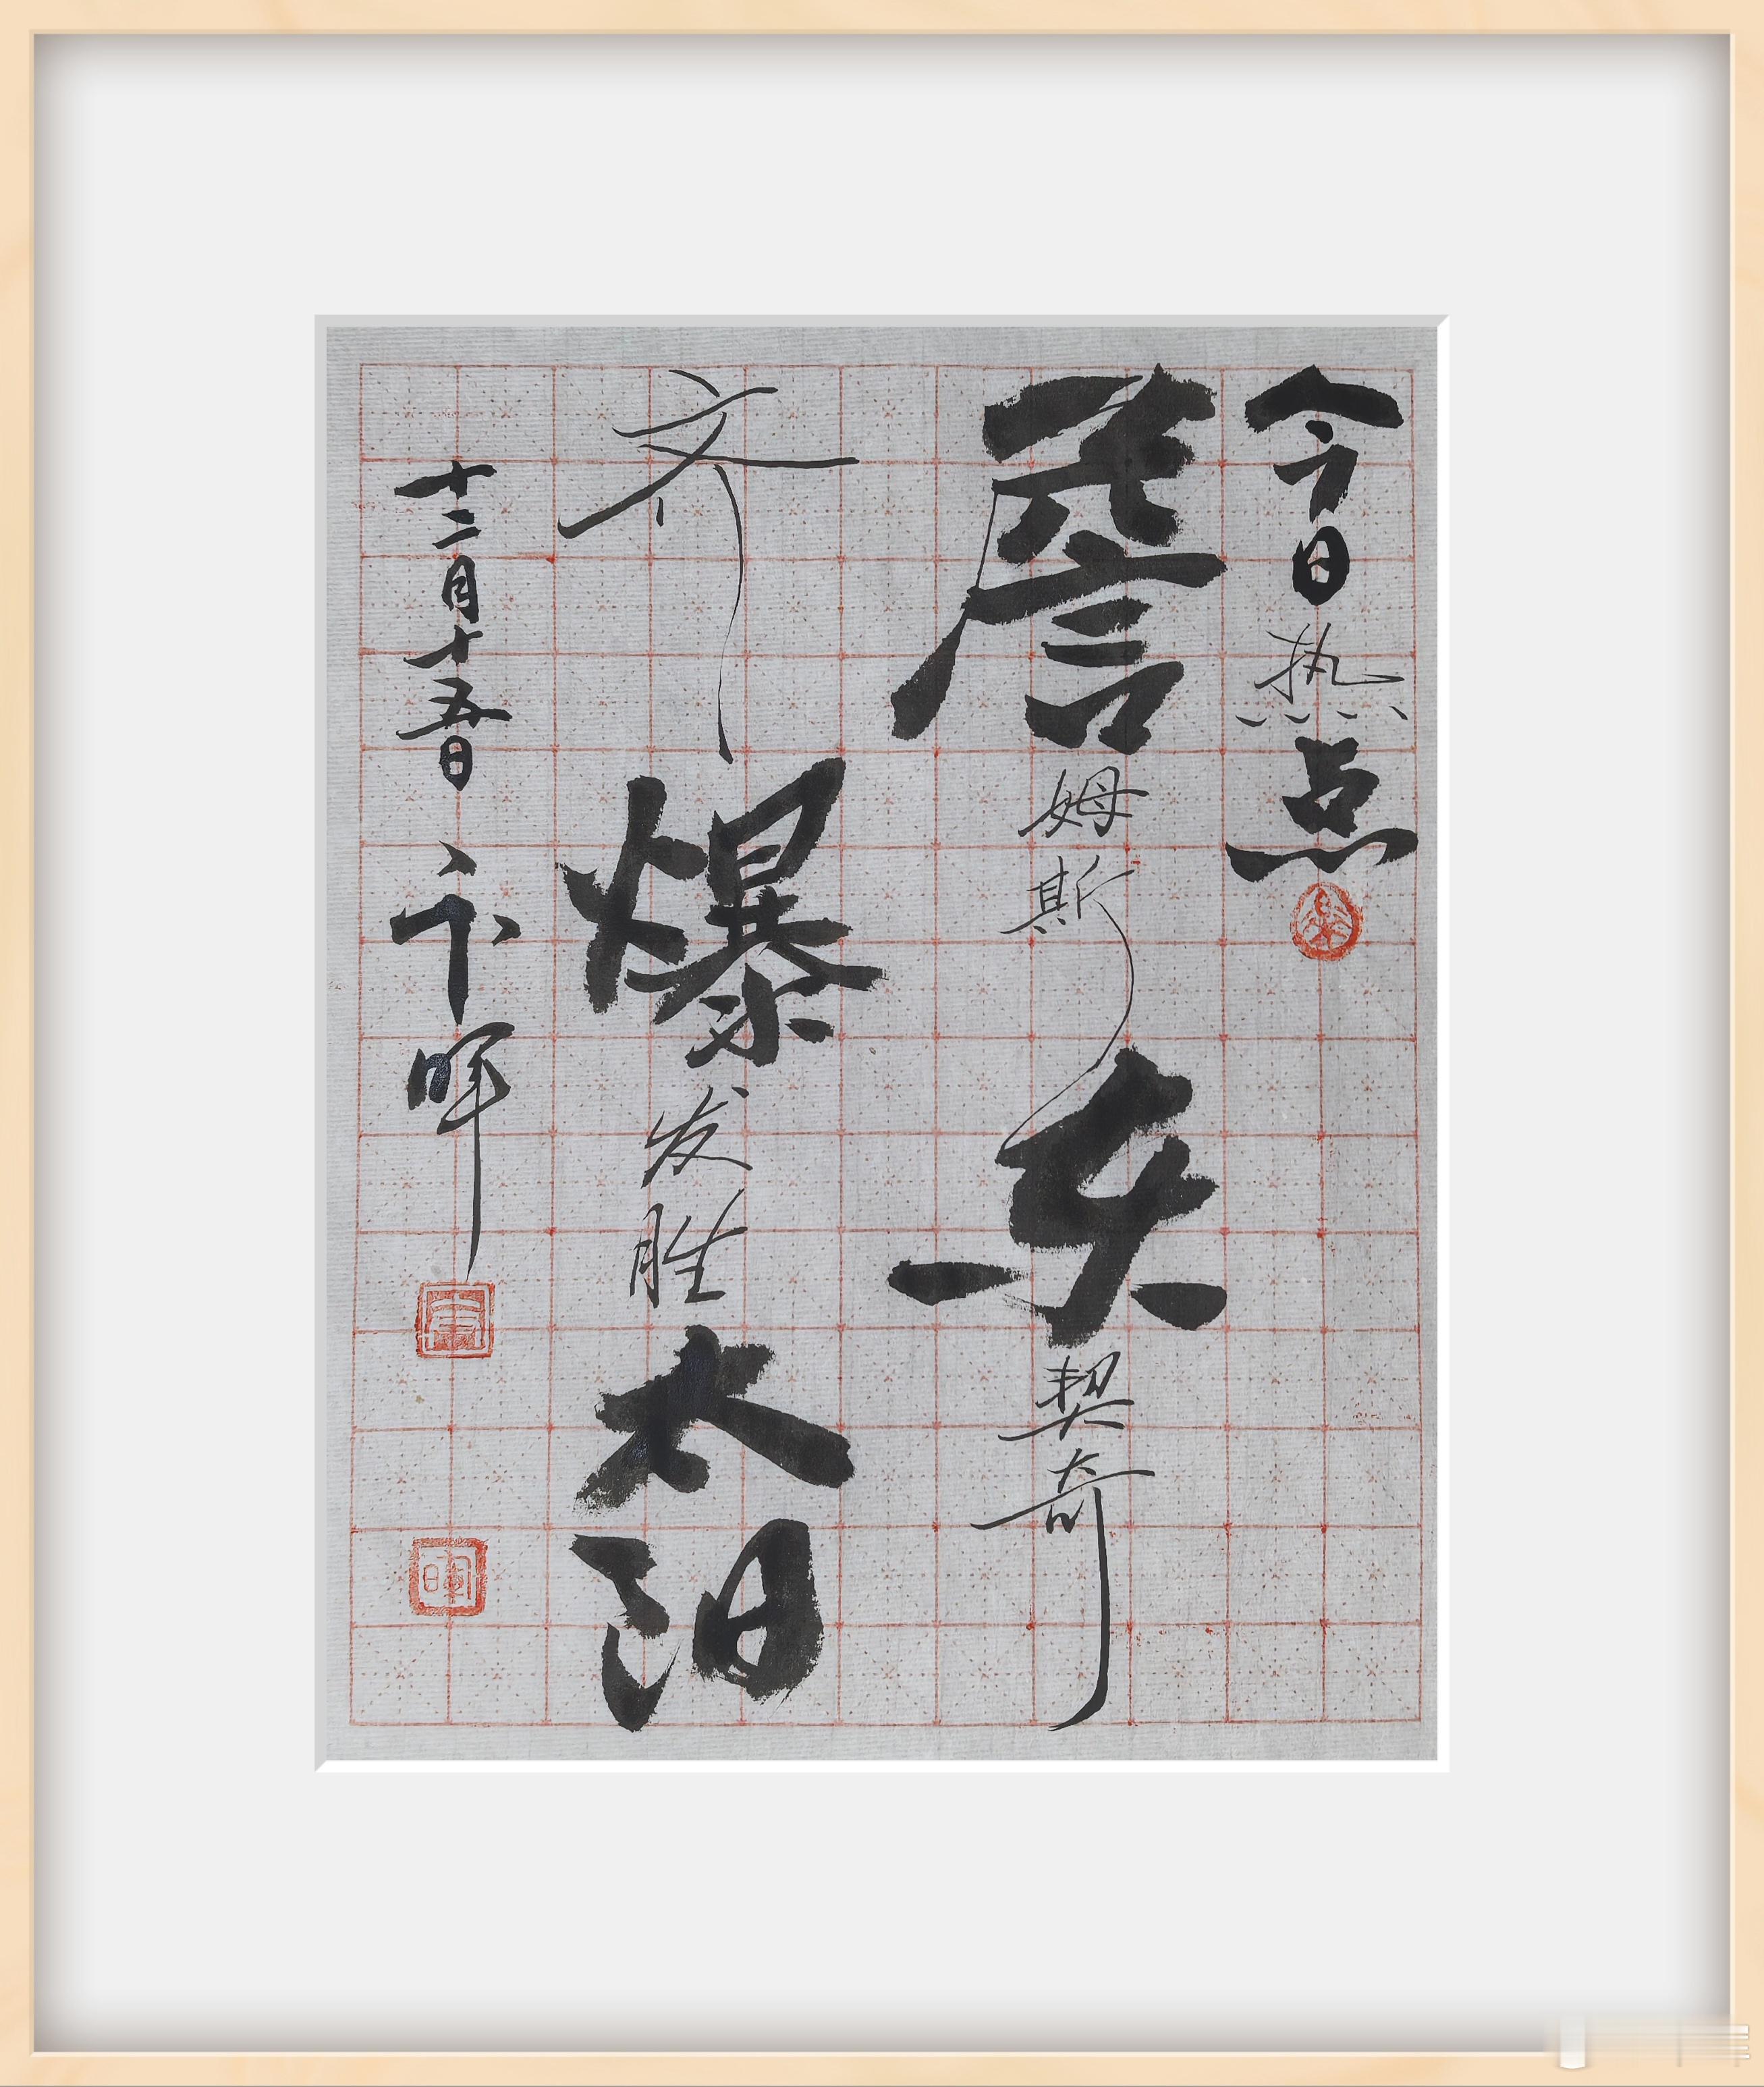 今日热点
詹姆斯东契奇
齐爆发胜太阳
十二月十五日 卞晖